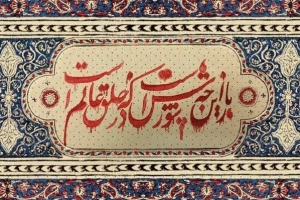 باز این چه شورش است که در خلق عالم است